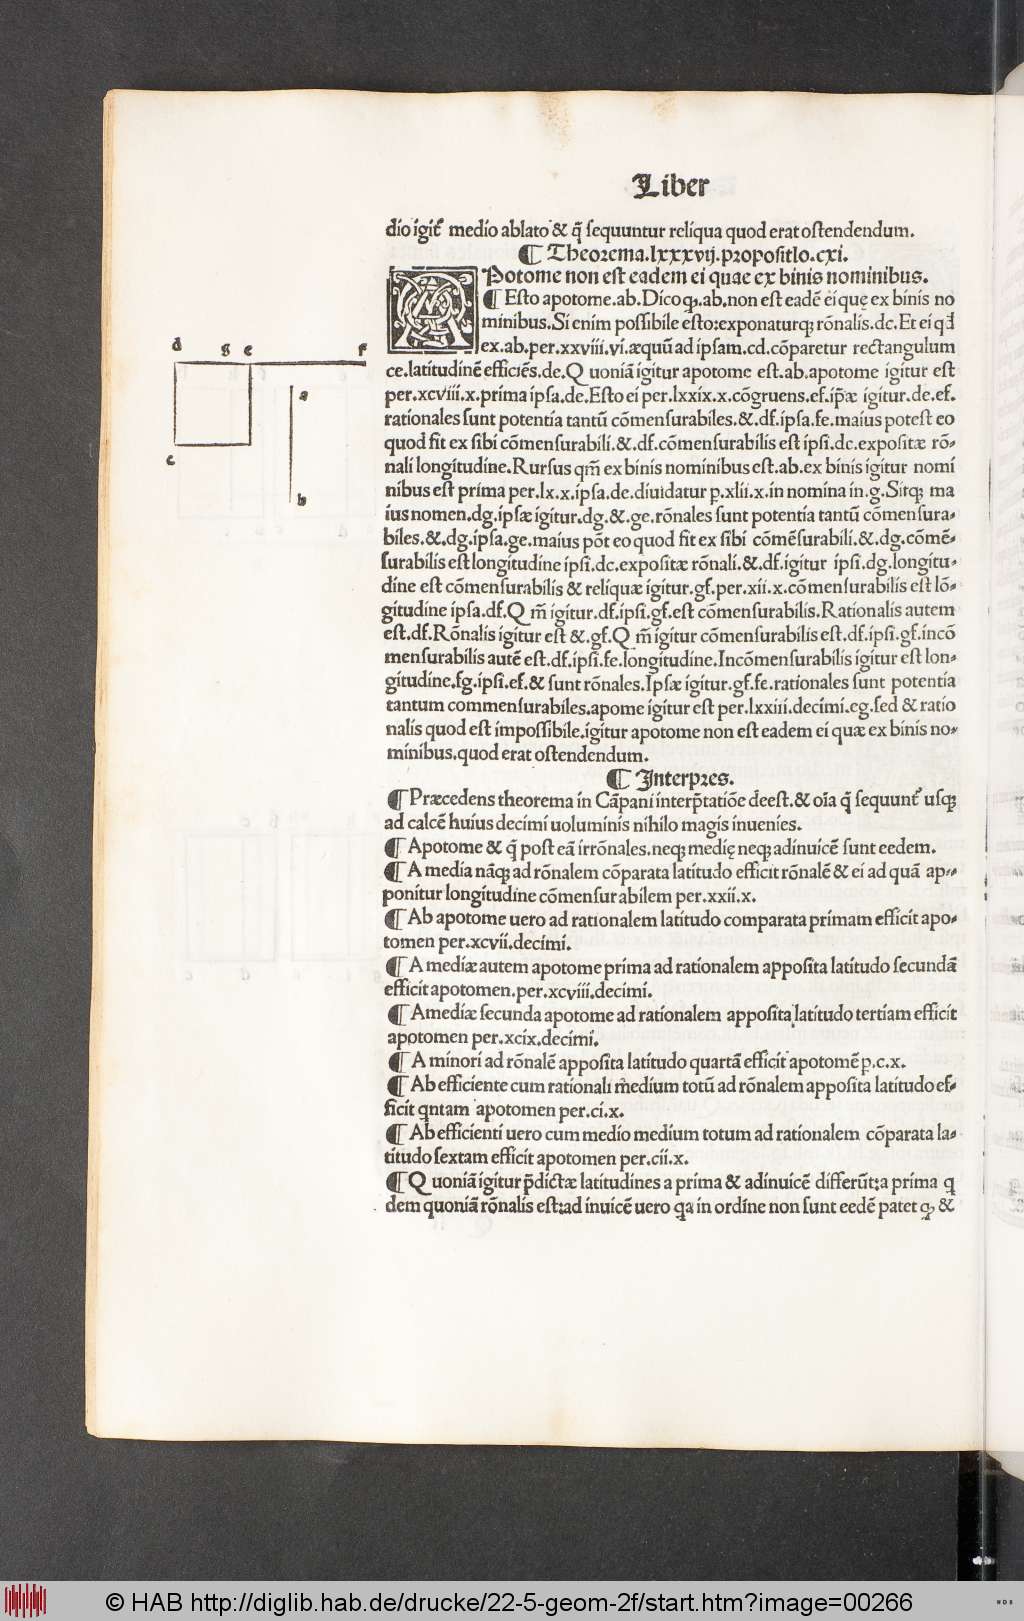 Liber
dio igit᷑ medio ablato & q̃ sequuntur reliqua quod erat ostendendum.
¶ Theorema.lxxxvij.propositio.cxi.
APotome non est eadem ei quae ex binis nominibus.
¶ Esto apotome.ab.Dico ꝙ.ab.non est eadẽ ei quę ex binis no
minibus.Si enim possibile esto:exponaturqꝫ rõnalis.dc.Et ei qđ
ex.ab.per.xxviii.vi.æquũ ad ipsam.cd.cõparetur rectangulum
ce.latitudinẽ efficiẽs.de.Q uoniã igitur apotome est.ab.apotome igitur est
per.xcviii.x.prima ipsa.de.Esto ei per.lxxix.x.cõgruens.ef.ip̃æ igitur.de.ef.
rationales sunt potentia tantũ cõmensurabiles.&.df.ipsa.fe.maius potest eo
quod fit ex sibi cõmensurabili.&.df.cõmensurabilis est ipsi.dc.expositæ rõ-
nali longitudine.Rursus qm̃ ex binis nominibus est.ab.ex binis igitur nomi
nibus est prima per.lx.x.ipsa.de.diuidatur p̱.xlii.x.in nomina in.g.Sitqꝫ ma
ius nomen.dg.ipsæ igitur.dg.&.ge.rõnales sunt potentia tantũ cõmensura-
biles.&.dg.ipsa.ge.maius põt eo quod fit ex sibi cõmẽsurabili.&.dg.cõmẽ-
surabilis est longitudine ipsi.dc.expositæ rõnali.&.df.igitur ipsi.dg.longitu-
dine est cõmensurabilis & reliquæ igitur.gf.per.xii.x.cõmensurabilis est lõ-
gitudine ipsa.df.Q m̃ igitur.df.ipsi.gf.est cõmensurabilis.Rationalis autem
est.df.Rõnalis igitur est &.gf.Q m̃ igitur cõmensurabilis est.df.ipsi.gf.incõ
mensurabilis autẽ est.df.ipsi.fe.longitudine.Incõmensurabilis igitur est lon-
gitudine.fg.ipsi.ef.& sunt rõnales.Ipsæ igitur.gf.fe.rationales sunt potentia
tantum commensurabiles.apome igitur est per.lxxiii.decimi.eg.sed & ratio
nalis quod est impossibile.igitur apotome non est eadem ei quæ ex binis no-
minibus.quod erat ostendendum.
¶ Interpres.
¶ Præcedens theorema in Cãpani interp̃tatiõe deest.& oĩa q̃ sequunt᷑ usqꝫ
ad calcẽ huius decimi uoluminis nihilo magis inuenies.
¶ Apotome & q̃ post eã irrõnales.neqꝫ medię neqꝫ adinuicẽ sunt eedem.
¶ A media nãqꝫ ad rõnalem cõparata latitudo efficit rõnalẽ & ei ad quã ap-
ponitur longitudine cõmensurabilem per.xxii.x.
¶ Ab apotome uero ad rationalem latitudo comparata primam efficit apo-
tomen per.xcvii.decimi.
¶ A mediæ autem apotome prima ad rationalem apposita latitudo secundã
efficit apotomen.per.xcviii.decimi.
¶ Amediæ secunda apotome ad rationalem apposita latitudo tertiam efficit
apotomen per.xcix.decimi.
¶ A minori ad rõnalẽ apposita latitudo quartã efficit apotomẽ p̱.c.x.
¶ Ab efficiente cum rationali medium totũ ad rõnalem apposita latitudo ef-
ficit qntam apotomen per.ci.x.
¶ Ab efficienti uero cum medio medium totum ad rationalem cõparata la-
titudo sextam efficit apotomen per.cii.x.
¶ Q uoniã igitur p̃dictæ latitudines a prima & adinuicẽ differũt:a prima q
dem quoniã rõnalis est:ad inuicẽ uero qa in ordine non sunt eedẽ patet ꝙ &
d g e f
a
c
b
© HAB http://diglib.hab.de/drucke/22-5-geom-2f/start.htm?image=00266